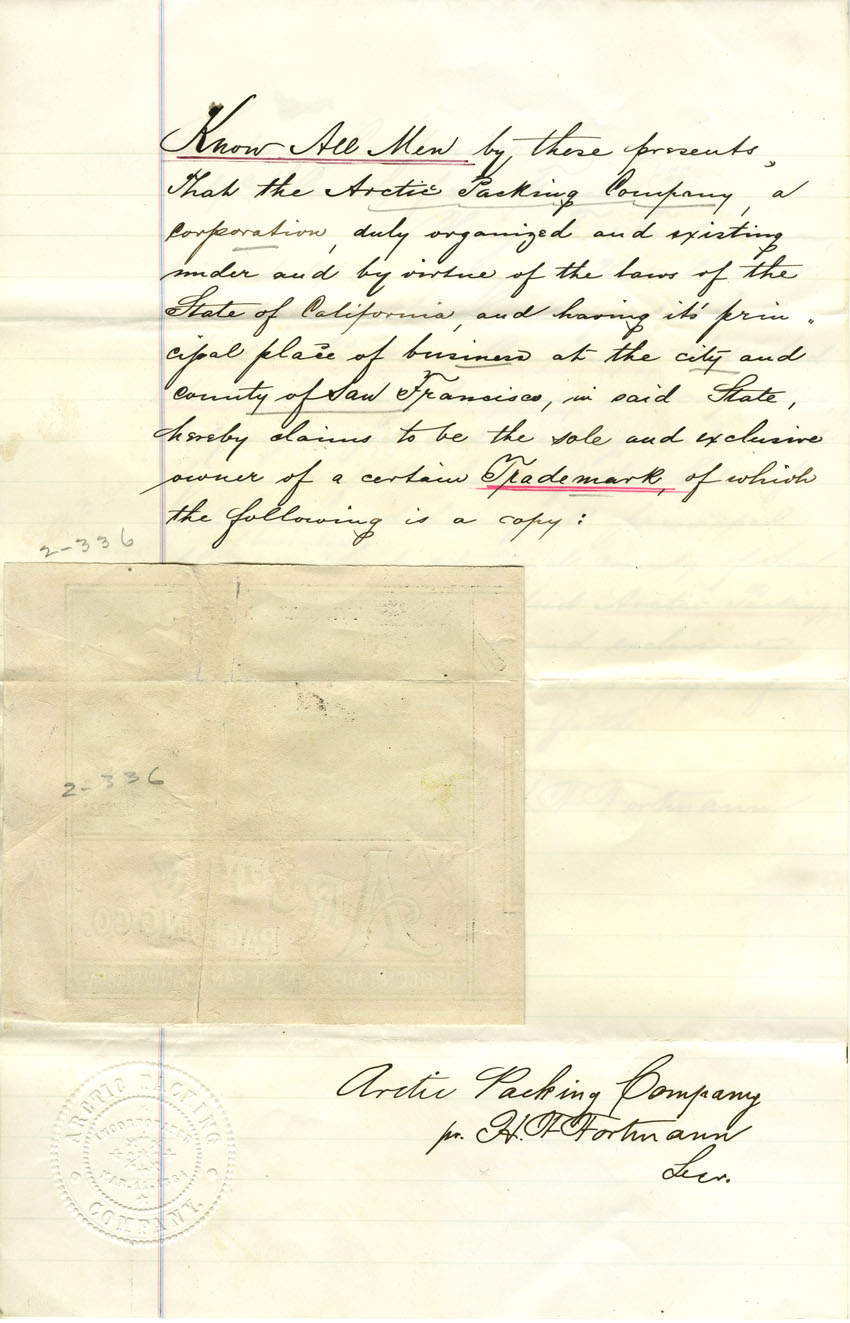 Know All Men by these presents,
That the Arctic Packing Company, a
corporation, duly organized and existing
under and by virtue of the laws of the
State of California, and having it's prin„
cipal place of business at the city and
county of San Francisco, in said State,
hereby claims to be the sole and exclusive
owner of a certain Trademark, of which
the following is a copy:
2-336
2-336
PACKING CO.
ARCTIC PACKING
COMPANY.
INCORPORATED
Arctic Packing Company
pr. H. F. Fortmann
Secr.